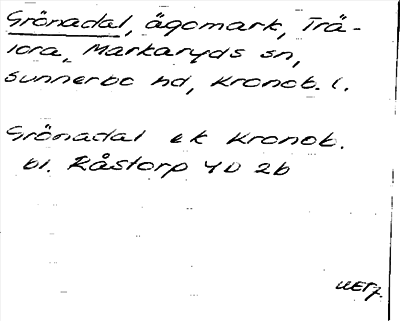 Grönadal, ägomark, Trä-
lora, Markaryds sn,
Sunnerbo hd, Kronob. l.
Grönadal ek Kronob.
bl. Råstorp 4D 2b